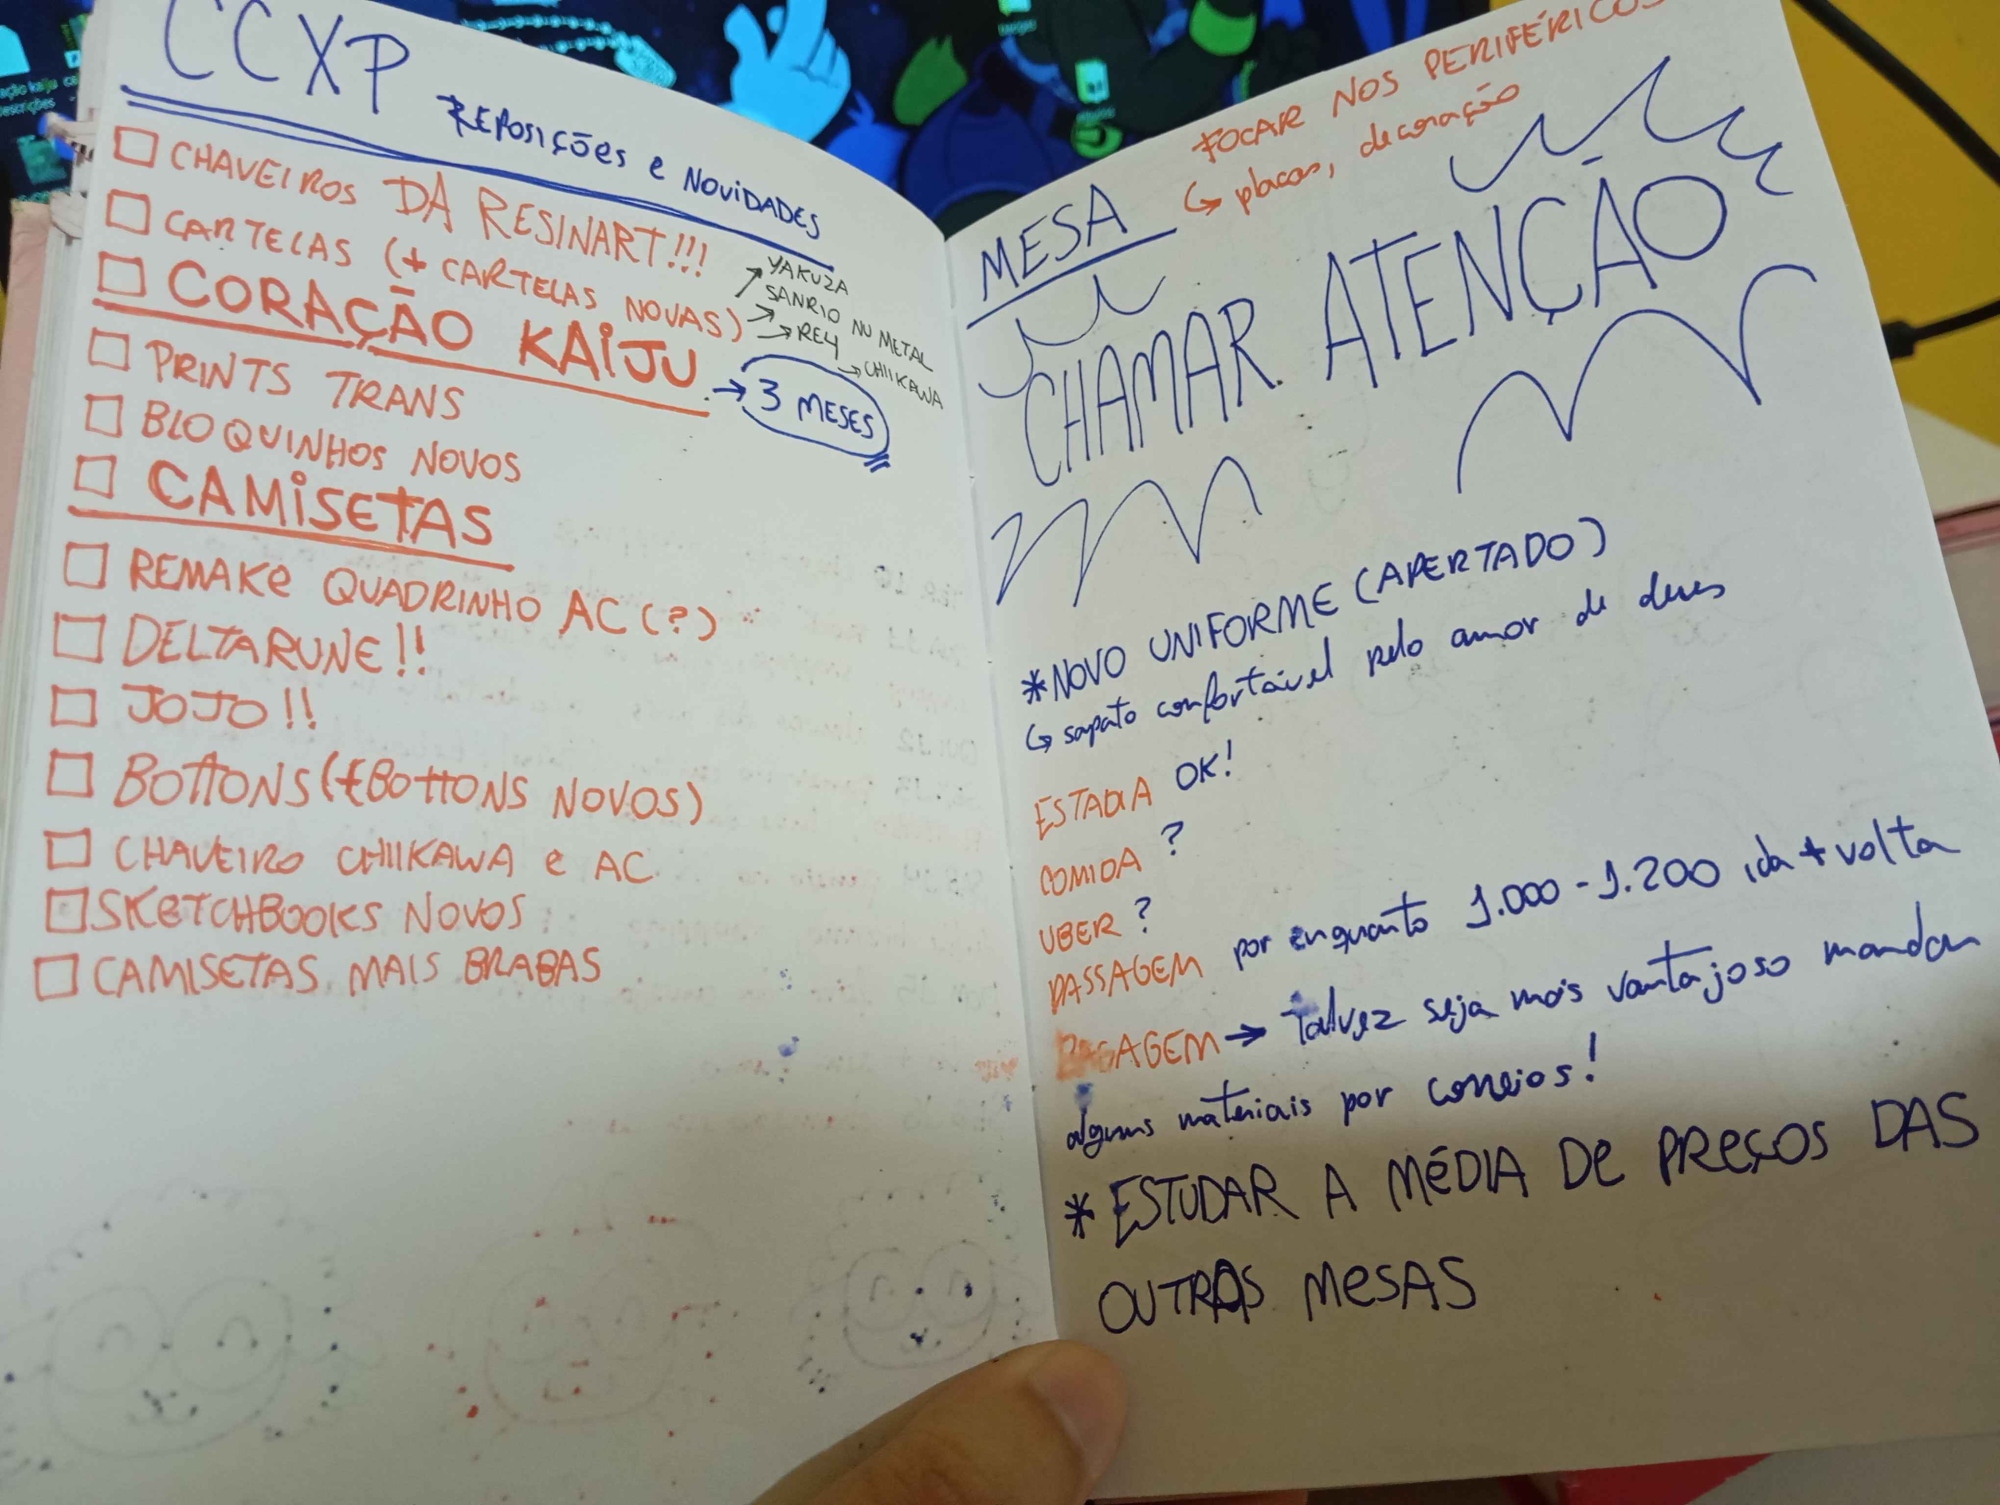 CCXP
REPOSIÇÕES e NOVIDADES
CHAVEIROS DA RESINART!!!
CARTELAS (+ CARTELAS NOVAS)
YAKUZA
SANRIO NU METAL
RE4
CHIIKAWA
CORAÇÃO KAIJU
3 MESES
PRINTS TRANS
BLOQUINHOS NOVOS
CAMISETAS
REMAKE QUADRINHO AC (?)
DELTARUNE!!
JOJO!!
BOTTONS (+BOTTONS NOVOS)
CHAVEIRO CHIIKAWA e AC
SKETCHBOOKS NOVOS
CAMISETAS MAIS BRABAS
FOCAR NOS PERIFÉRICOS
placas, decoração
MESA
CHAMAR ATENÇÃO
*NOVO UNIFORME (APERTADO)
sapato confortável pelo amor de deus
ESTADIA OK!
COMIDA ?
UBER ?
PASSAGEM por enquanto 1.000 - 1.200 ida + volta
BAGAGEM → Talvez seja mais vantajoso mandar
alguns materiais por correios!
* ESTUDAR A MÉDIA DE PREÇOS DAS
OUTRAS MESAS